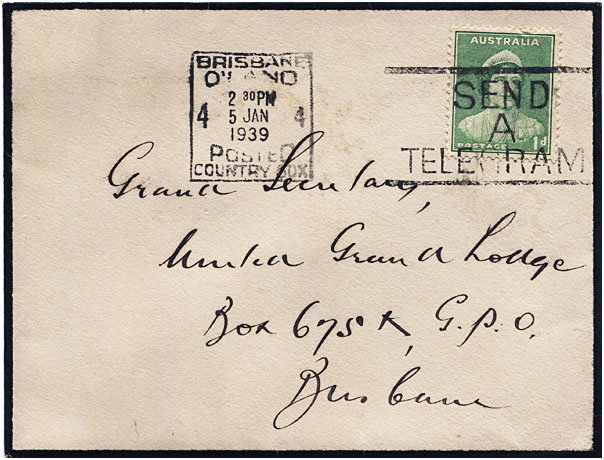 BRISBANE
Q'LAND
2 30PM
4 5 JAN 4
1939
POSTED
COUNTRY BOX
AUSTRALIA
SEND
A
POSTAGE 1d
TELEGRAM
Grand Secretary,
United Grand Lodge
Box 675K, G.P.O.
Brisbane